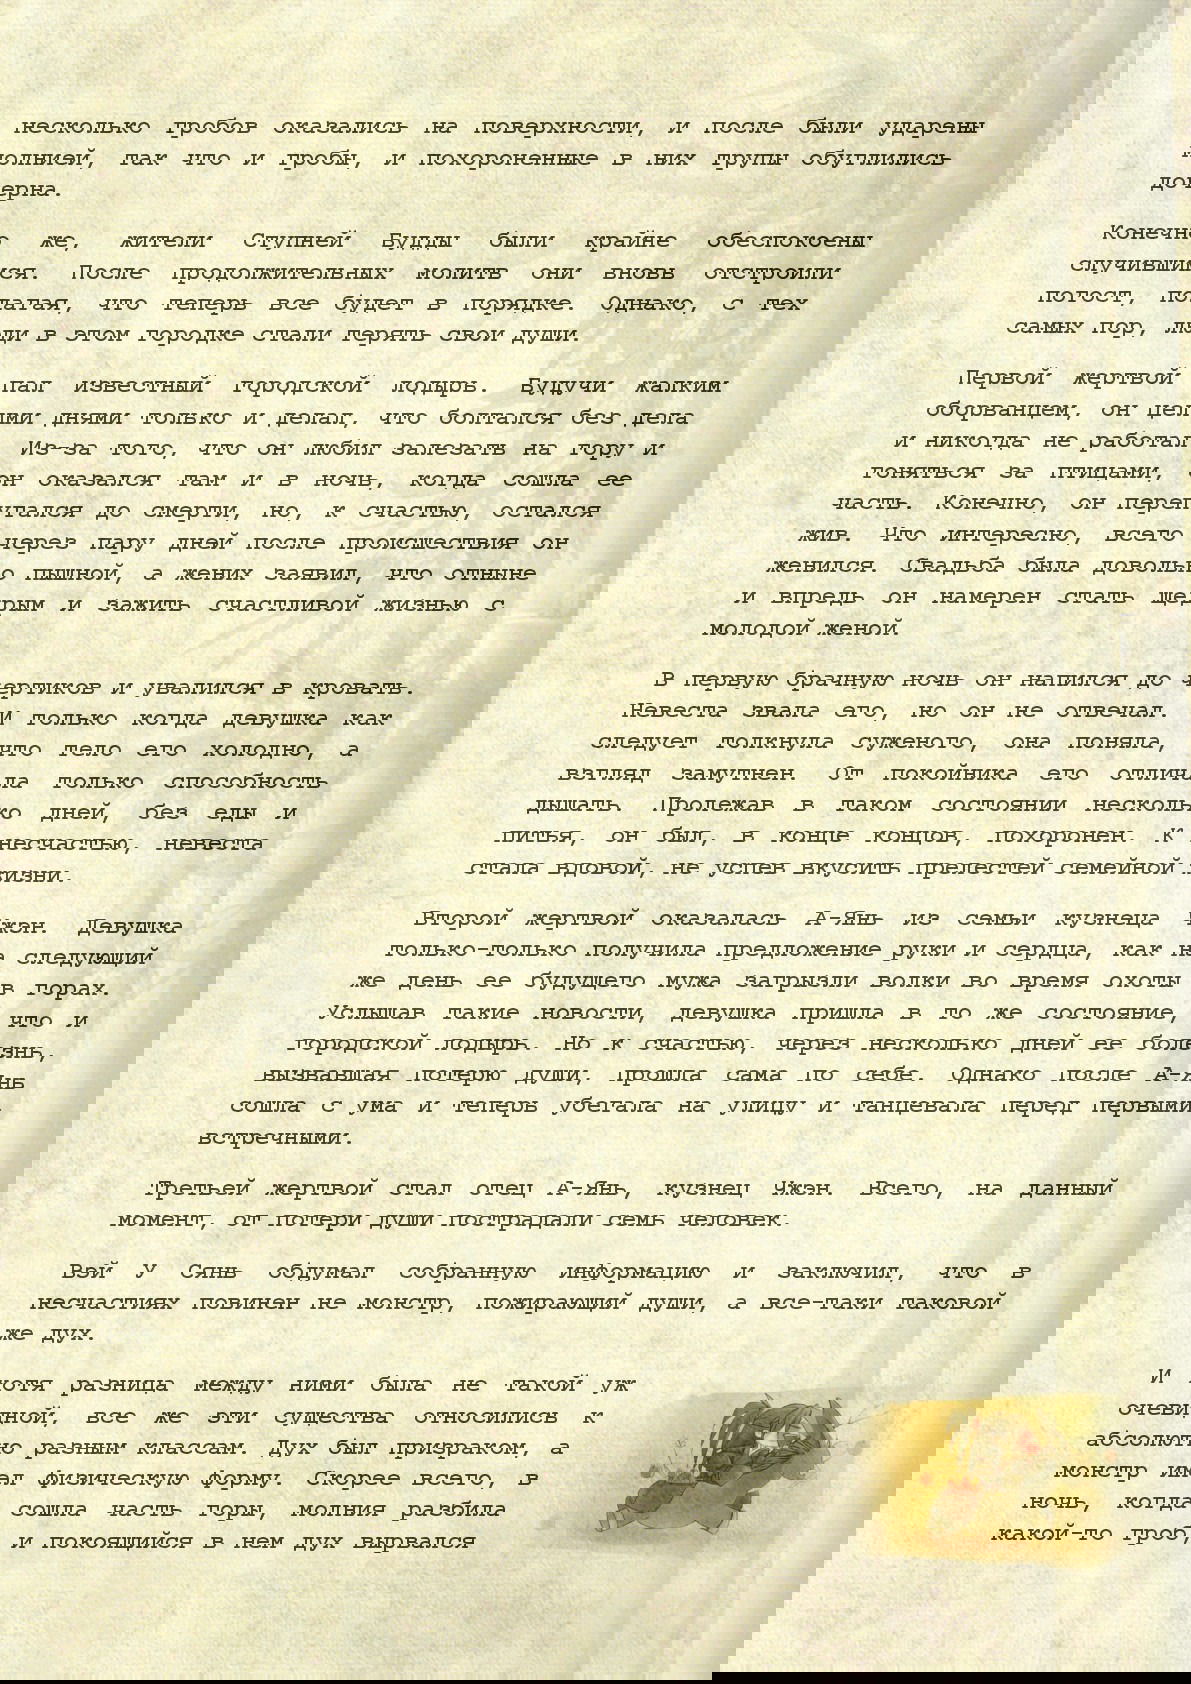 несколько гробов оказались на поверхности, и после были ударены
молнией, так что и гробы, и похороненные в них трупы обуглились
дочерна.
Конечно же, жители Ступней Будды были крайне обеспокоены
случившимся. После продолжительных молитв они вновь отстроили
погост, полагая, что теперь все будет в порядке. Однако, с тех
самых пор, люди в этом городке стали терять свои души.
Первой жертвой пал известный городской лодырь. Будучи жалким
оборванцем, он целыми днями только и делал, что болтался без дела
и никогда не работал. Из-за того, что он любил залезать на гору и
гоняться за птицами, он оказался там и в ночь, когда сошла ее
часть. Конечно, он перепугался до смерти, но, к счастью, остался
жив. Что интересно, всего через пару дней после происшествия он
женился. Свадьба была довольно пышной, а жених заявил, что отныне
и впредь он намерен стать щедрым и зажить счастливой жизнью с
молодой женой.
В первую брачную ночь он напился до чертиков и увалился в кровать.
Невеста звала его, но он не отвечал. И только когда девушка как
следует толкнула суженого, она поняла, что тело его холодно, а
взгляд замутнен. От покойника его отличала только способность
дышать. Пролежав в таком состоянии несколько дней, без еды и
питья, он был, в конце концов, похоронен. К несчастью, невеста
стала вдовой, не успев вкусить прелестей семейной жизни.
Второй жертвой оказалась А-Янь из семьи кузнеца Чжэн. Девушка
только-только получила предложение руки и сердца, как на следующий
же день ее будущего мужа загрызли волки во время охоты в горах.
Услышав такие новости, девушка пришла в то же состояние, что и
городской лодырь. Но к счастью, через несколько дней ее болезнь,
вызвавшая потерю души, прошла сама по себе. Однако после А-Янь
сошла с ума и теперь убегала на улицу и танцевала перед первыми
встречными.
Третьей жертвой стал отец А-Янь, кузнец Чжэн. Всего, на данный
момент, от потери души пострадали семь человек.
Вэй У Сянь обдумал собранную информацию и заключил, что в
несчастиях повинен не монстр, пожирающий души, а все-таки таковой
же дух.
И хотя разница между ними была не такой уж
очевидной, все же эти существа относились к
абсолютно разным классам. Дух был призраком, а
монстр имел физическую форму. Скорее всего, в
ночь, когда сошла часть горы, молния разбила
какой-то гроб, и покоящийся в нем дух вырвался